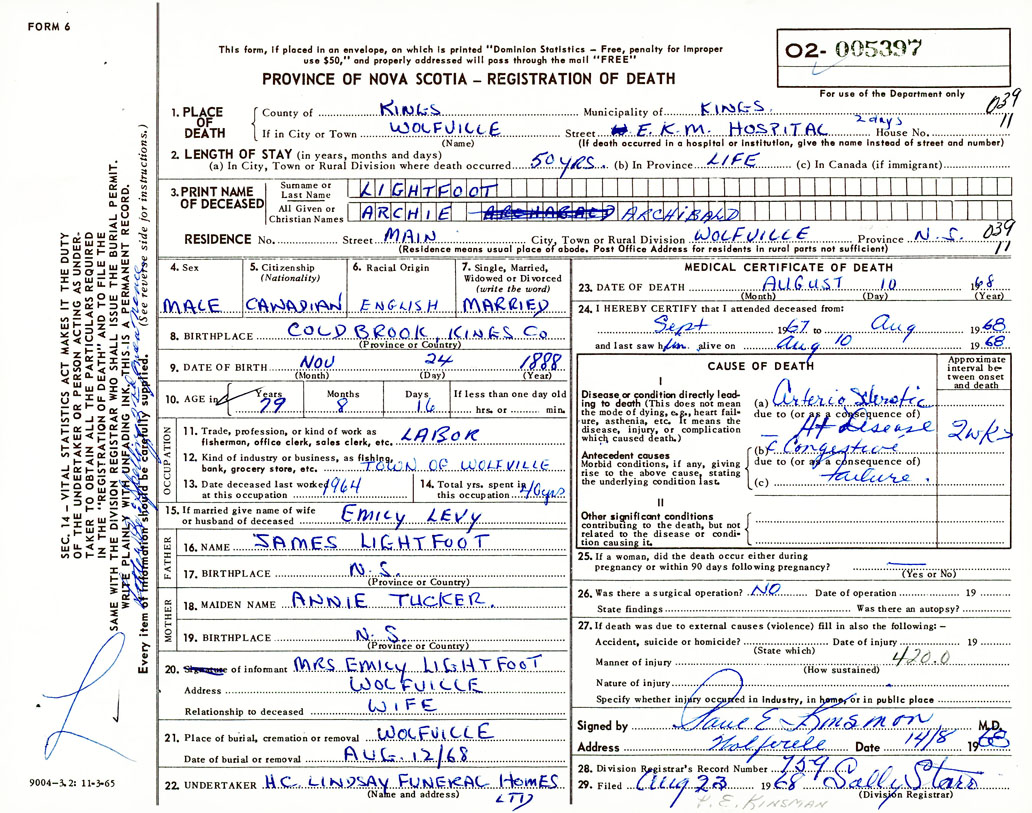 FORM 6
This form, if placed in an envelope, on which is printed "Dominion Statistics – Free, penalty for improper
use $50," and properly addressed will pass through the mail "FREE"
PROVINCE OF NOVA SCOTIA – REGISTRATION OF DEATH
O2- 005397
For use of the Department only
039
11
1. PLACE OF DEATH
County of KINGS Municipality of KINGS.
If in City or Town WOLFVILLE Street E.K.M. HOSPITAL 2 days House No.
(Name) (If death occurred in a hospital or institution, give the name instead of street and number)
2. LENGTH OF STAY (in years, months and days)
(a) In City, Town or Rural Division where death occurred 50 YRS. (b) In Province LIFE (c) In Canada (if immigrant)
3. PRINT NAME OF DECEASED
Surname or Last Name LIGHTFOOT
All Given or Christian Names ARCHIE ARCHIBALD
RESIDENCE No. Street MAIN City, Town or Rural Division WOLFVILLE Province N.S. 039
(Residence means usual place of abode. Post Office Address for residents in rural parts not sufficient) 11
4. Sex
MALE
5. Citizenship (Nationality)
CANADIAN
6. Racial Origin
ENGLISH
7. Single, Married, Widowed or Divorced (write the word)
MARRIED
8. BIRTHPLACE COLDBROOK, KINGS CO
(Province or Country)
9. DATE OF BIRTH NOV 24 1888
(Month) (Day) (Year)
10. AGE in Years Months Days If less than one day old
79 8 16 hrs. or min.
OCCUPATION
11. Trade, profession, or kind of work as
fisherman, office clerk, sales clerk, etc. LABOR
12. Kind of industry or business, as fishing,
bank, grocery store, etc. TOWN OF WOLFVILLE
13. Date deceased last worked at this occupation 1964
14. Total yrs. spent in this occupation 40 yrs
15. If married give name of wife
or husband of deceased EMILY LEVY
FATHER
16. NAME JAMES LIGHTFOOT
17. BIRTHPLACE N.S.
(Province or Country)
MOTHER
18. MAIDEN NAME ANNIE TUCKER.
19. BIRTHPLACE N.S.
(Province or Country)
20. Signature of informant MRS EMILY LIGHTFOOT
Address WOLFVILLE
Relationship to deceased WIFE
21. Place of burial, cremation or removal WOLFVILLE
Date of burial or removal AUG. 12/68
22. UNDERTAKER H.C. LINDSAY FUNERAL HOMES
(Name and address) LTD
MEDICAL CERTIFICATE OF DEATH
23. DATE OF DEATH AUGUST 10 1968
(Month) (Day) (Year)
24. I HEREBY CERTIFY that I attended deceased from:
Sept 1967 to Aug 1968
and last saw him alive on Aug 10 1968
CAUSE OF DEATH
Approximate interval between onset and death
I
Disease or condition directly leading to death (This does not mean
the mode of dying, e.g., heart failure, asthenia, etc. It means the
disease, injury, or complication
which caused death.)
(a) Arterio Sclerotic
due to (or as a consequence of)
Ht Disease
2 wks
Antecedent causes
Morbid conditions, if any, giving
rise to the above cause, stating
the underlying condition last.
(b) c Congestive
due to (or as a consequence of)
(c) failure.
II
Other significant conditions
contributing to the death, but not
related to the disease or condition causing it.
25. If a woman, did the death occur either during
pregnancy or within 90 days following pregnancy?
(Yes or No)
26. Was there a surgical operation? NO Date of operation 19
State findings Was there an autopsy?
27. If death was due to external causes (violence) fill in also the following: –
Accident, suicide or homicide? Date of injury 19
(State which)
Manner of injury 420.0
(How sustained)
Nature of injury
Specify whether injury occurred in Industry, in home, or in public place
Signed by Paul E Kinsman M.D.
Address Wolfville Date 14/8 1968
28. Division Registrar's Record Number 759
29. Filed Aug 23 1968 Sally Starr
(Division Registrar)
P. E. KINSMAN
SEC. 14 – VITAL STATISTICS ACT MAKES IT THE DUTY
OF THE UNDERTAKER OR PERSON ACTING AS UNDER-
TAKER TO OBTAIN ALL THE PARTICULARS REQUIRED
IN THE "REGISTRATION OF DEATH" AND TO FILE THE
SAME WITH THE DIVISION REGISTRAR WHO SHALL ISSUE THE BURIAL PERMIT.
WRITE PLAINLY WITH UNFADING INK, THIS IS A PERMANENT RECORD.
Every item of information should be carefully supplied. (See reverse side for instructions.)
9004-3.2: 11-3-65